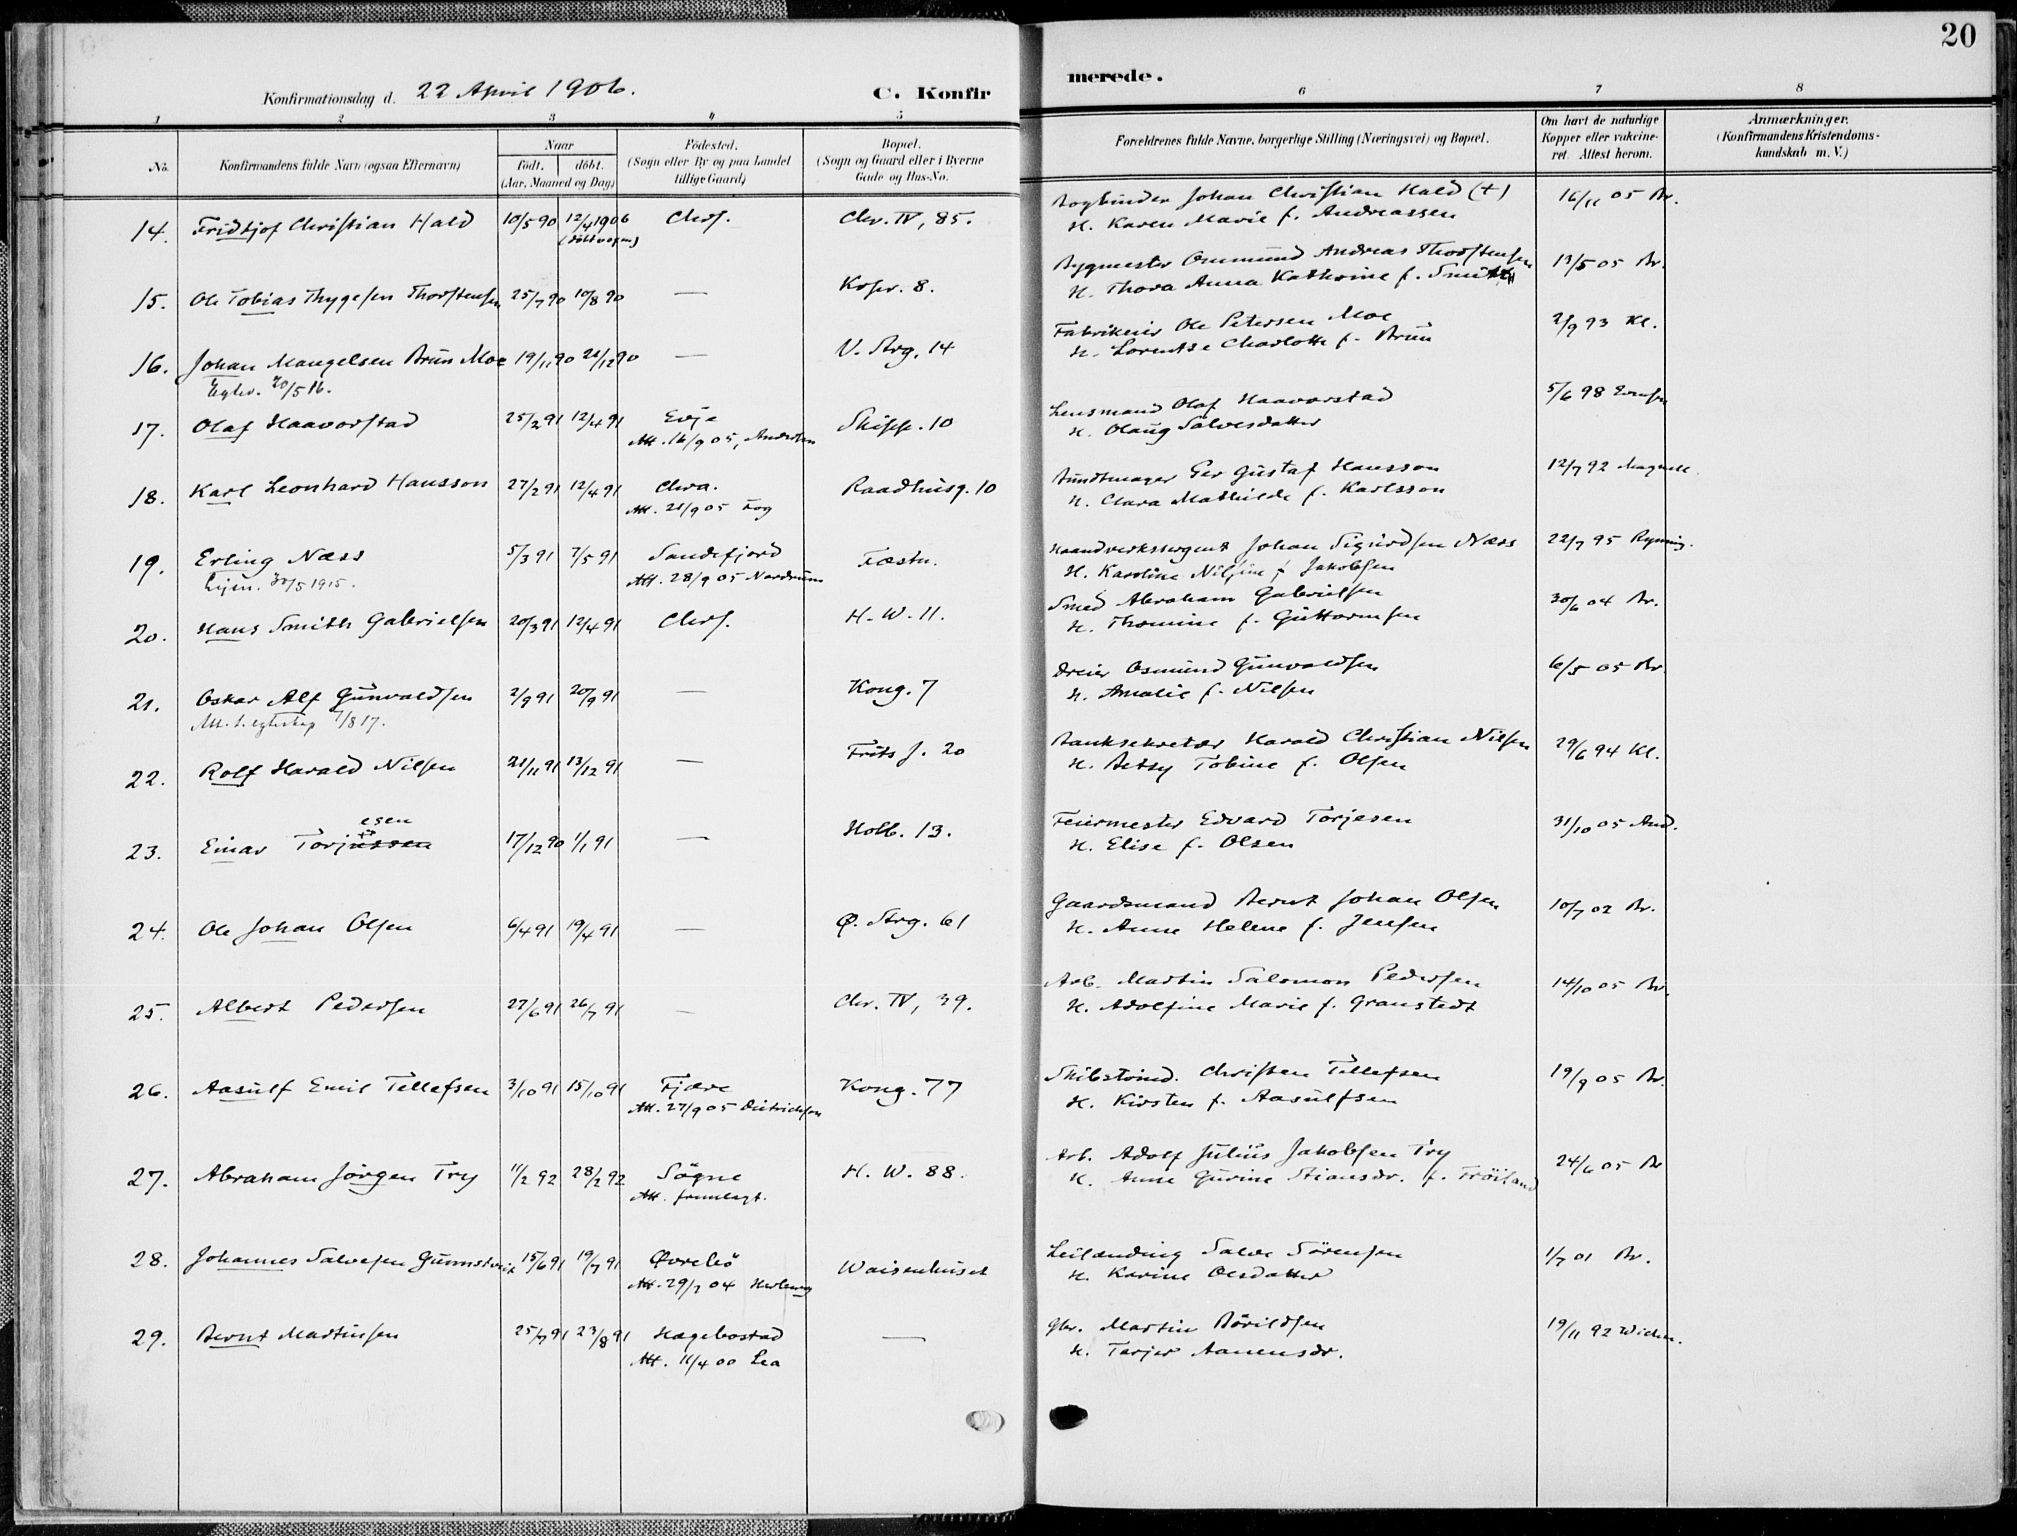 20
Konfirmationsdag d. 22 April 1906.
C. Konfirmerede.
1 2 3 4 5 6 7 8
No.
Konfirmandens fulde Navn (ogsaa Efternavn)
Naar
født. döbt.
(Aar, Maaned og Dag)
Födested.
(Sogn eller By og paa Landet
tillige Gaard)
Bopæl.
(Sogn og Gaard eller i Byerne
Gade og Hus-No.
Forældrenes fulde Navne, borgerlige Stilling (Næringsvei) og Bopæl.
Om havt de naturlige
Kopper eller vakcine-
ret. Attest herom.
Anmærkninger.
(Konfirmandens Kristendoms-
kundskab m. V.)
14. Fridtjof Christian Hald 10/5 90 12/4 1906 Chrs. Chr. IV, 85. Bogbinder Johan Christian Hald (+) 16/11 05 Br.
H. Karen Marie f. Andreassen
15. Ole Tobias Thygesen Thorstensen 25/7 90 10/8 90 — Kosv. 8. Bygmester Ommund Andreas Thorstensen 13/5 05 Br.
H. Thora Anna Kathrine f. Smith
16. Johan Mangelsen Brun Moe 19/11 90 21/12 90 — V. Strg. 14 Fabrikeier Ole Petersen Moe 2/9 93 Kl.
Egtev. 20/5 16. H. Lorentze Charlotte f. Brun
17. Olaf Haavorstad 25/2 91 12/4 91 Evje Skipp. 10 Lensmand Olaf Haavorstad 5/6 98
Att. 16/9 05, H. Olaug Salvesdatter
18. Karl Leonhard Hansson 27/2 91 12/4 91 Chra. Raadhusg. 10 Bundtmager Per Gustaf Hansson 12/7 92
Att. 21/9 05 Fog H. Clara Mathilde f. Karlsson
19. Erling Næss 5/3 91 7/5 91 Sandefjord Fæstn. Haandverkssergent Johan Sigurdsen Næss 22/7 95 Rynning.
30/5 1915. Att. 28/9 05 Nordrum H. Karoline Nilsine f. Jakobsen
20. Hans Smith Gabrielsen 20/3 91 12/4 91 Chrs. H. W. 11. Smed Abraham Gabrielsen 30/6 04 Br.
H. Thomine f. Guttormsen
21. Oskar Alf Gunvaldsen 2/9 91 20/9 91 — Kong. 7 Dreier Osmund Gunvaldsen 6/5 05 Br.
Att. t. egteskap 7/8 17. H. Amalie f. Nilsen
22. Rolf Harald Nilsen 21/11 91 13/12 91 — Frits J. 20 Banksekretær Harald Christian Nilsen 29/6 94 Kl.
H. Betsy Tobine f. Olsen
esen
23. Einar Torjussen 17/12 90 1/1 91 — Holb. 13. Feiermester Edvard Torjesen 31/10 05 And.
H. Elise f. Olsen
24. Ole Johan Olsen 6/4 91 19/4 91 — Ø. Strg. 61 Gaardsmand Bernt Johan Olsen 10/7 02 Br.
H. Anne Helene f. Jensen
25. Albert Pedersen 27/6 91 26/7 91 — Chr. IV, 39. Arb. Martin Salomon Pedersen 14/10 05 Br.
H. Adolfine Marie f. Granstedt
26. Aasulf Emil Tellefsen 3/10 91 15/10 91 Fjære Kong. 77 Skibstømd. Christen Tellefsen 19/9 05 Br.
Att. 27/9 05 Dietrichson H. Kirsten f. Aasulfsen
27. Abraham Jörgen Try 11/2 92 28/2 92 Sögne H. W. 88. Arb. Adolf Julius Jakobsen Try 24/6 05 Br
Att. fremlagt. H. Anne Gurine Stiansdr. f. Tröiland
28. Johannes Salvesen Gunnstveit 15/6 91 19/7 91 Øvrebö Waisenhuset Leilænding Salve Sörensen 1/7 01 Br.
Att. 29/7 04 H. Karine Olsdatter
29. Bernt Martinsen 25/7 91 23/8 91 Hægebostad — Gbr. Martin Börildsen 19/11 92
Att. 11/4 00 Lea H. Tarjer Aanensdr.